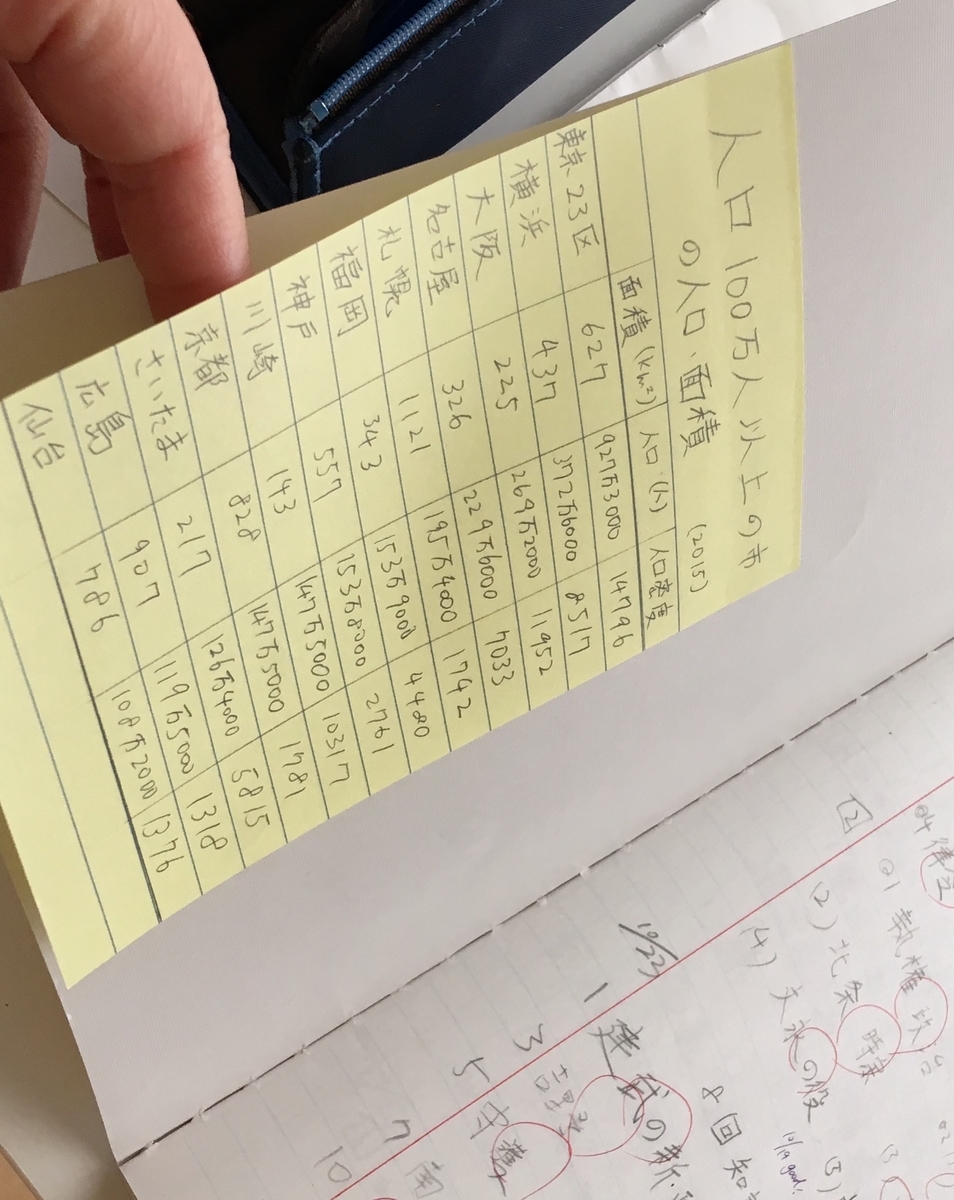 人口100万人以上の市
の人口・面積 (2015)
面積(km²) 人口(人) 人口密度
東京23区 627 927万3000 14796
横浜 437 372万6000 8517
大阪 225 269万2000 11952
名古屋 326 229万6000 7033
札幌 1121 195万4000 1742
福岡 343 153万9000 4480
神戸 557 153万8000 2761
川崎 143 147万5000 10317
京都 828 147万5000 1781
さいたま 217 126万4000 5815
広島 907 119万5000 1318
仙台 786 108万2000 1376
04
01 執権政治
2
(2) 北条
(4) 文永の役
(3)
10/23 8回知
1 建武の新
3
5 守護
7 南
10